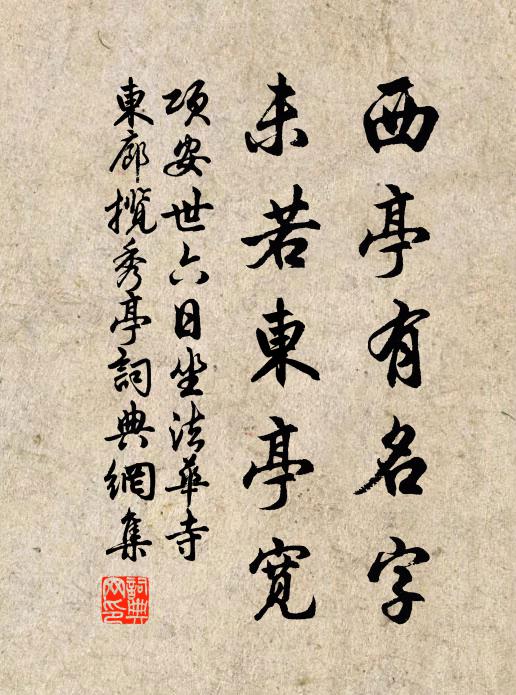 西亭有名字
未若東亭寬
項安世六日坐法華寺
東廊攬秀亭詞典網集
詞典網印